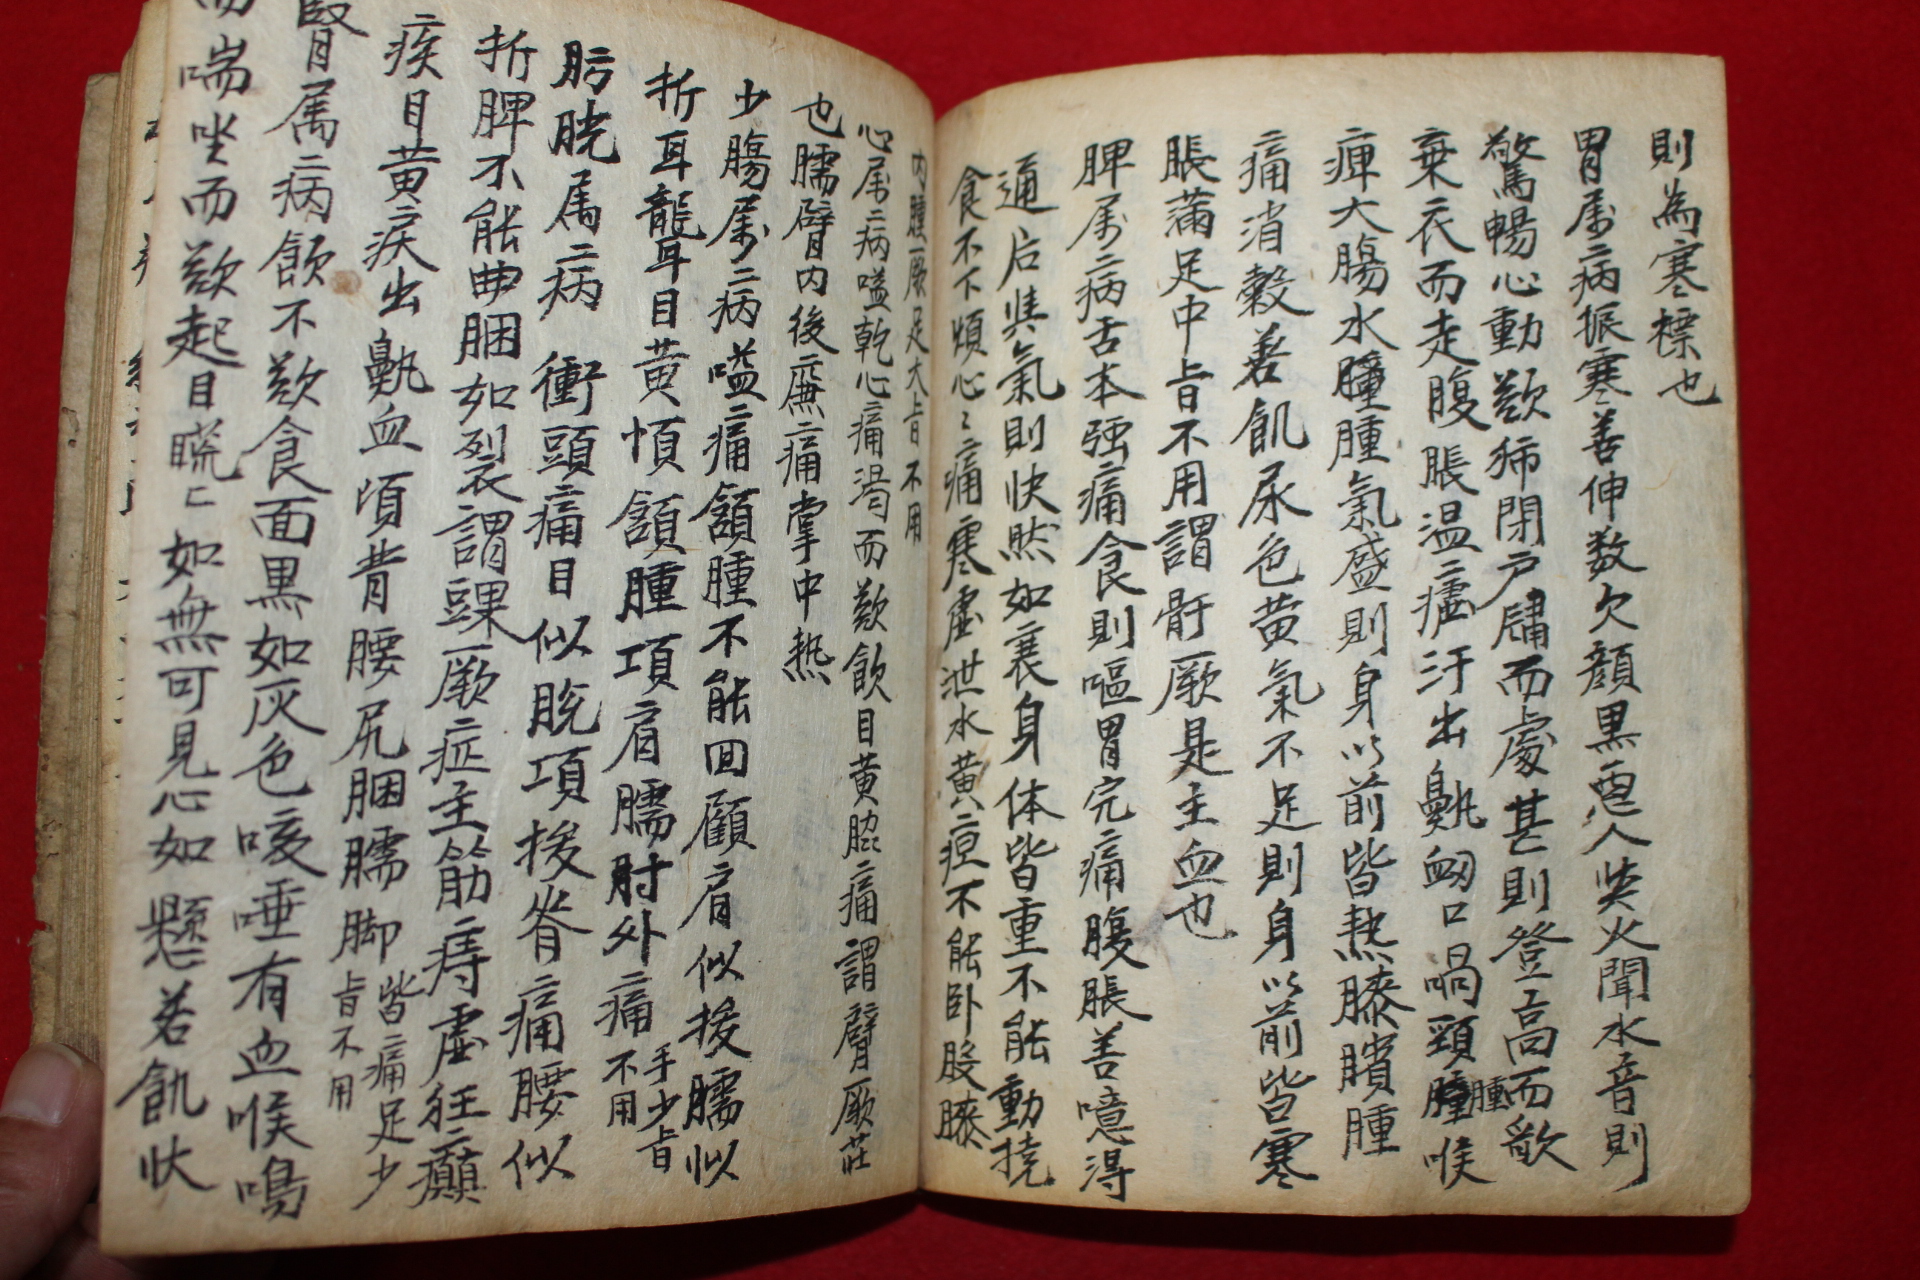 則為寒標也
胃属病振寒善伸数欠顔黒惡人與火聞水音則
驚暢心動欲獨閉戶牖而處甚則登高而歌
棄衣而走腹脹温瘧汗出鼽衂口喎頸腫喉
痺大腸水腫氣盛則身以前皆熱膝臏腫
痛消穀善飢尿色黄氣不足則身以前皆寒
脹滿足中旨不用謂骭厥是主血也
脾属病舌本强痛食則嘔胃完痛腹脹善噫得
通后與氣則快然如衰身体皆重不能動撓
食不下煩心心痛寒虚泄水黄疸不能卧股膝
内腫厥足大旨不用
心属病嗌乾心痛渴而欲飲目黄脇痛謂臂厥
也臑臂内後廉痛掌中熱
少腸属病嗌痛頷腫不能回顧肩似拔臑似
折耳聾目黄頄頷腫項肩臑肘外痛手少旨不用
膀胱属病衝頭痛目似脫項拔脊痛腰似
折脾不能曲膕如列裂謂踝厥症主筋痔虚狂癲
疾目黄淚出鼽血項背腰尻膕臑脚皆痛足少旨不用
腎属病飲不欲食面黒如灰色咳唾有血喉鳴
而喘坐而欲起目䀮〻如無可見心如懸若飢状